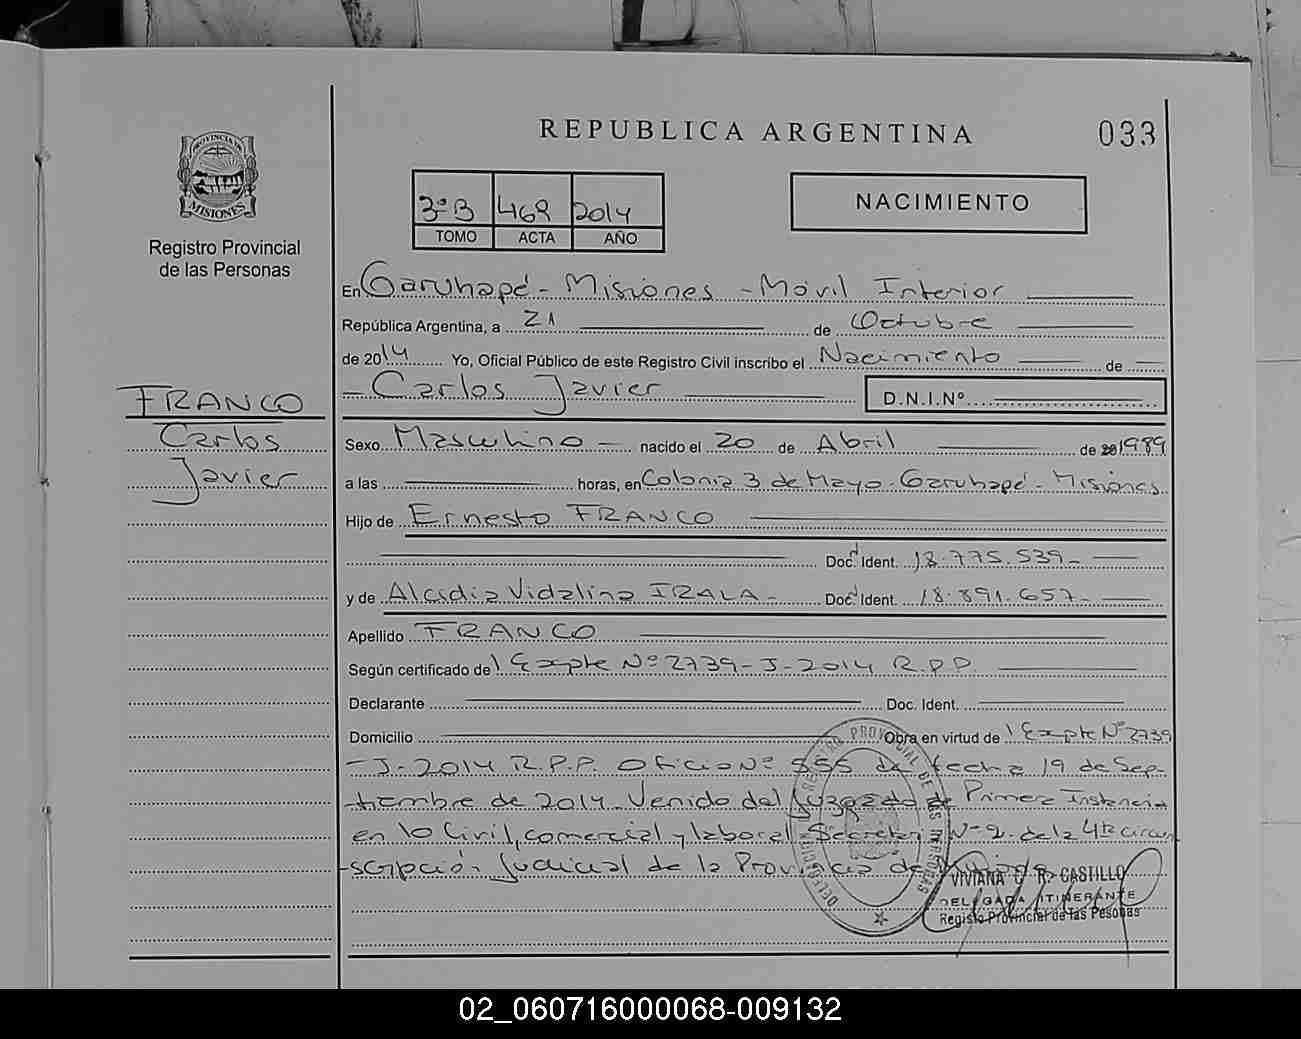 REPUBLICA ARGENTINA
033
PROVINCIA DE
MISIONES
Registro Provincial
de las Personas
3º B 469 2014
TOMO ACTA AÑO
NACIMIENTO
En Garuhapé - Misiones - Móvil Interior
República Argentina, a 21 de Octubre
de 2014 Yo, Oficial Público de este Registro Civil inscribo el Nacimiento de
- Carlos Javier
D.N.I.Nº
FRANCO
Carlos
Javier
Sexo Masculino - nacido el 20 de Abril de 20 1989
a las horas, en Colonia 3 de Mayo - Garuhapé - Misiones
Hijo de Ernesto FRANCO
Doc. Ident. 18.775.539-
y de Alcadia Vidalina IRALA - Doc. Ident. 18.891.657-
Apellido FRANCO
Según certificado de Expte Nº 2739-J-2014 R.P.P.
Declarante Doc. Ident.
Domicilio Obra en virtud de Expte Nº 2739
-J-2014 R.P.P. Oficio Nº 555 de fecha 19 de Sep-
tiembre de 2014. Venido del Juzgado de Primera Instancia
en lo Civil, comercial y laboral Nº 2 de la 4ta circun
scripción Judicial de la Provincia de
DELEGACION REGISTRO PROVINCIAL DE LAS PERSONAS
VIVIANA R. CASTILLO
DELEGADA ITINERANTE
Registro Provincial de las Pesonas
02_060716000068-009132